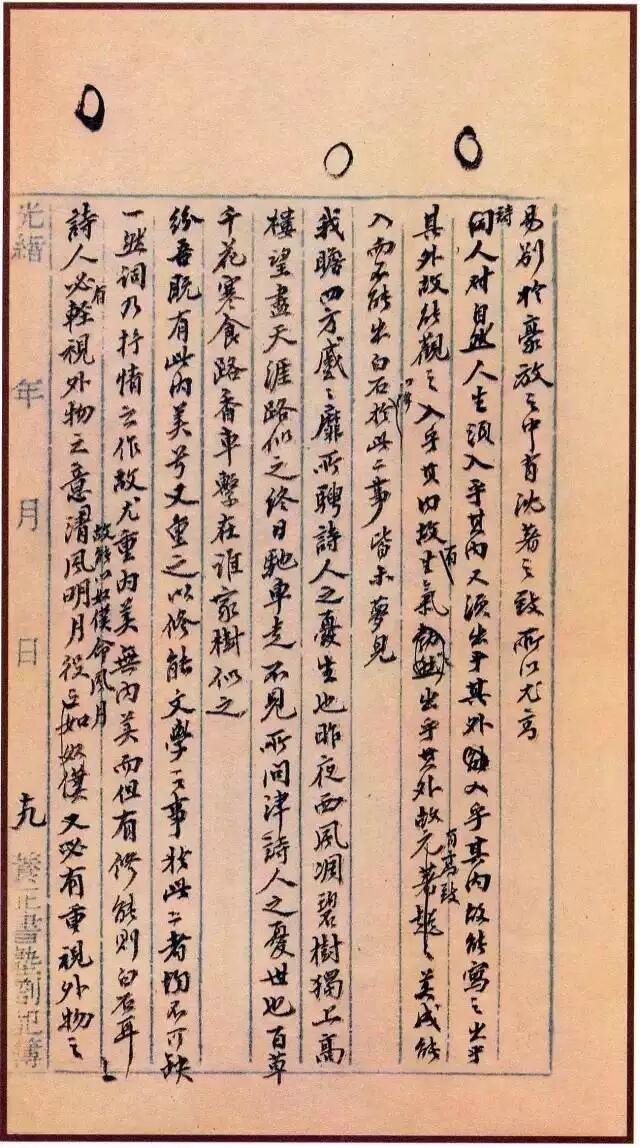 易别於豪放之中有沈著之致所以尤高
詩人对自然人生須入乎其内又須出乎其外入乎其内故能寫之出乎
其外故能觀之入乎其内故有生氣出乎其外故有高致元著超〻美成能
入而不能出白石以降於此二事皆未夢見
我瞻四方蹙〻靡所騁詩人之憂生也昨夜西風凋碧樹獨上高
樓望盡天涯路似之終日馳車走不見所問津詩人之憂世也百草
千花寒食路香車繫在誰家樹似之
紛吾既有此内美兮又重之以修能文學之事於此二者均不可缺
一然詞乃抒情之作故尤重内美無内美而但有修能則白石耳
詩人必有輕視外物之意故能以奴僕命風月清風明月役之如奴僕又必有重視外物之
光緒 年 月 日 十九 養正書塾劄記簿